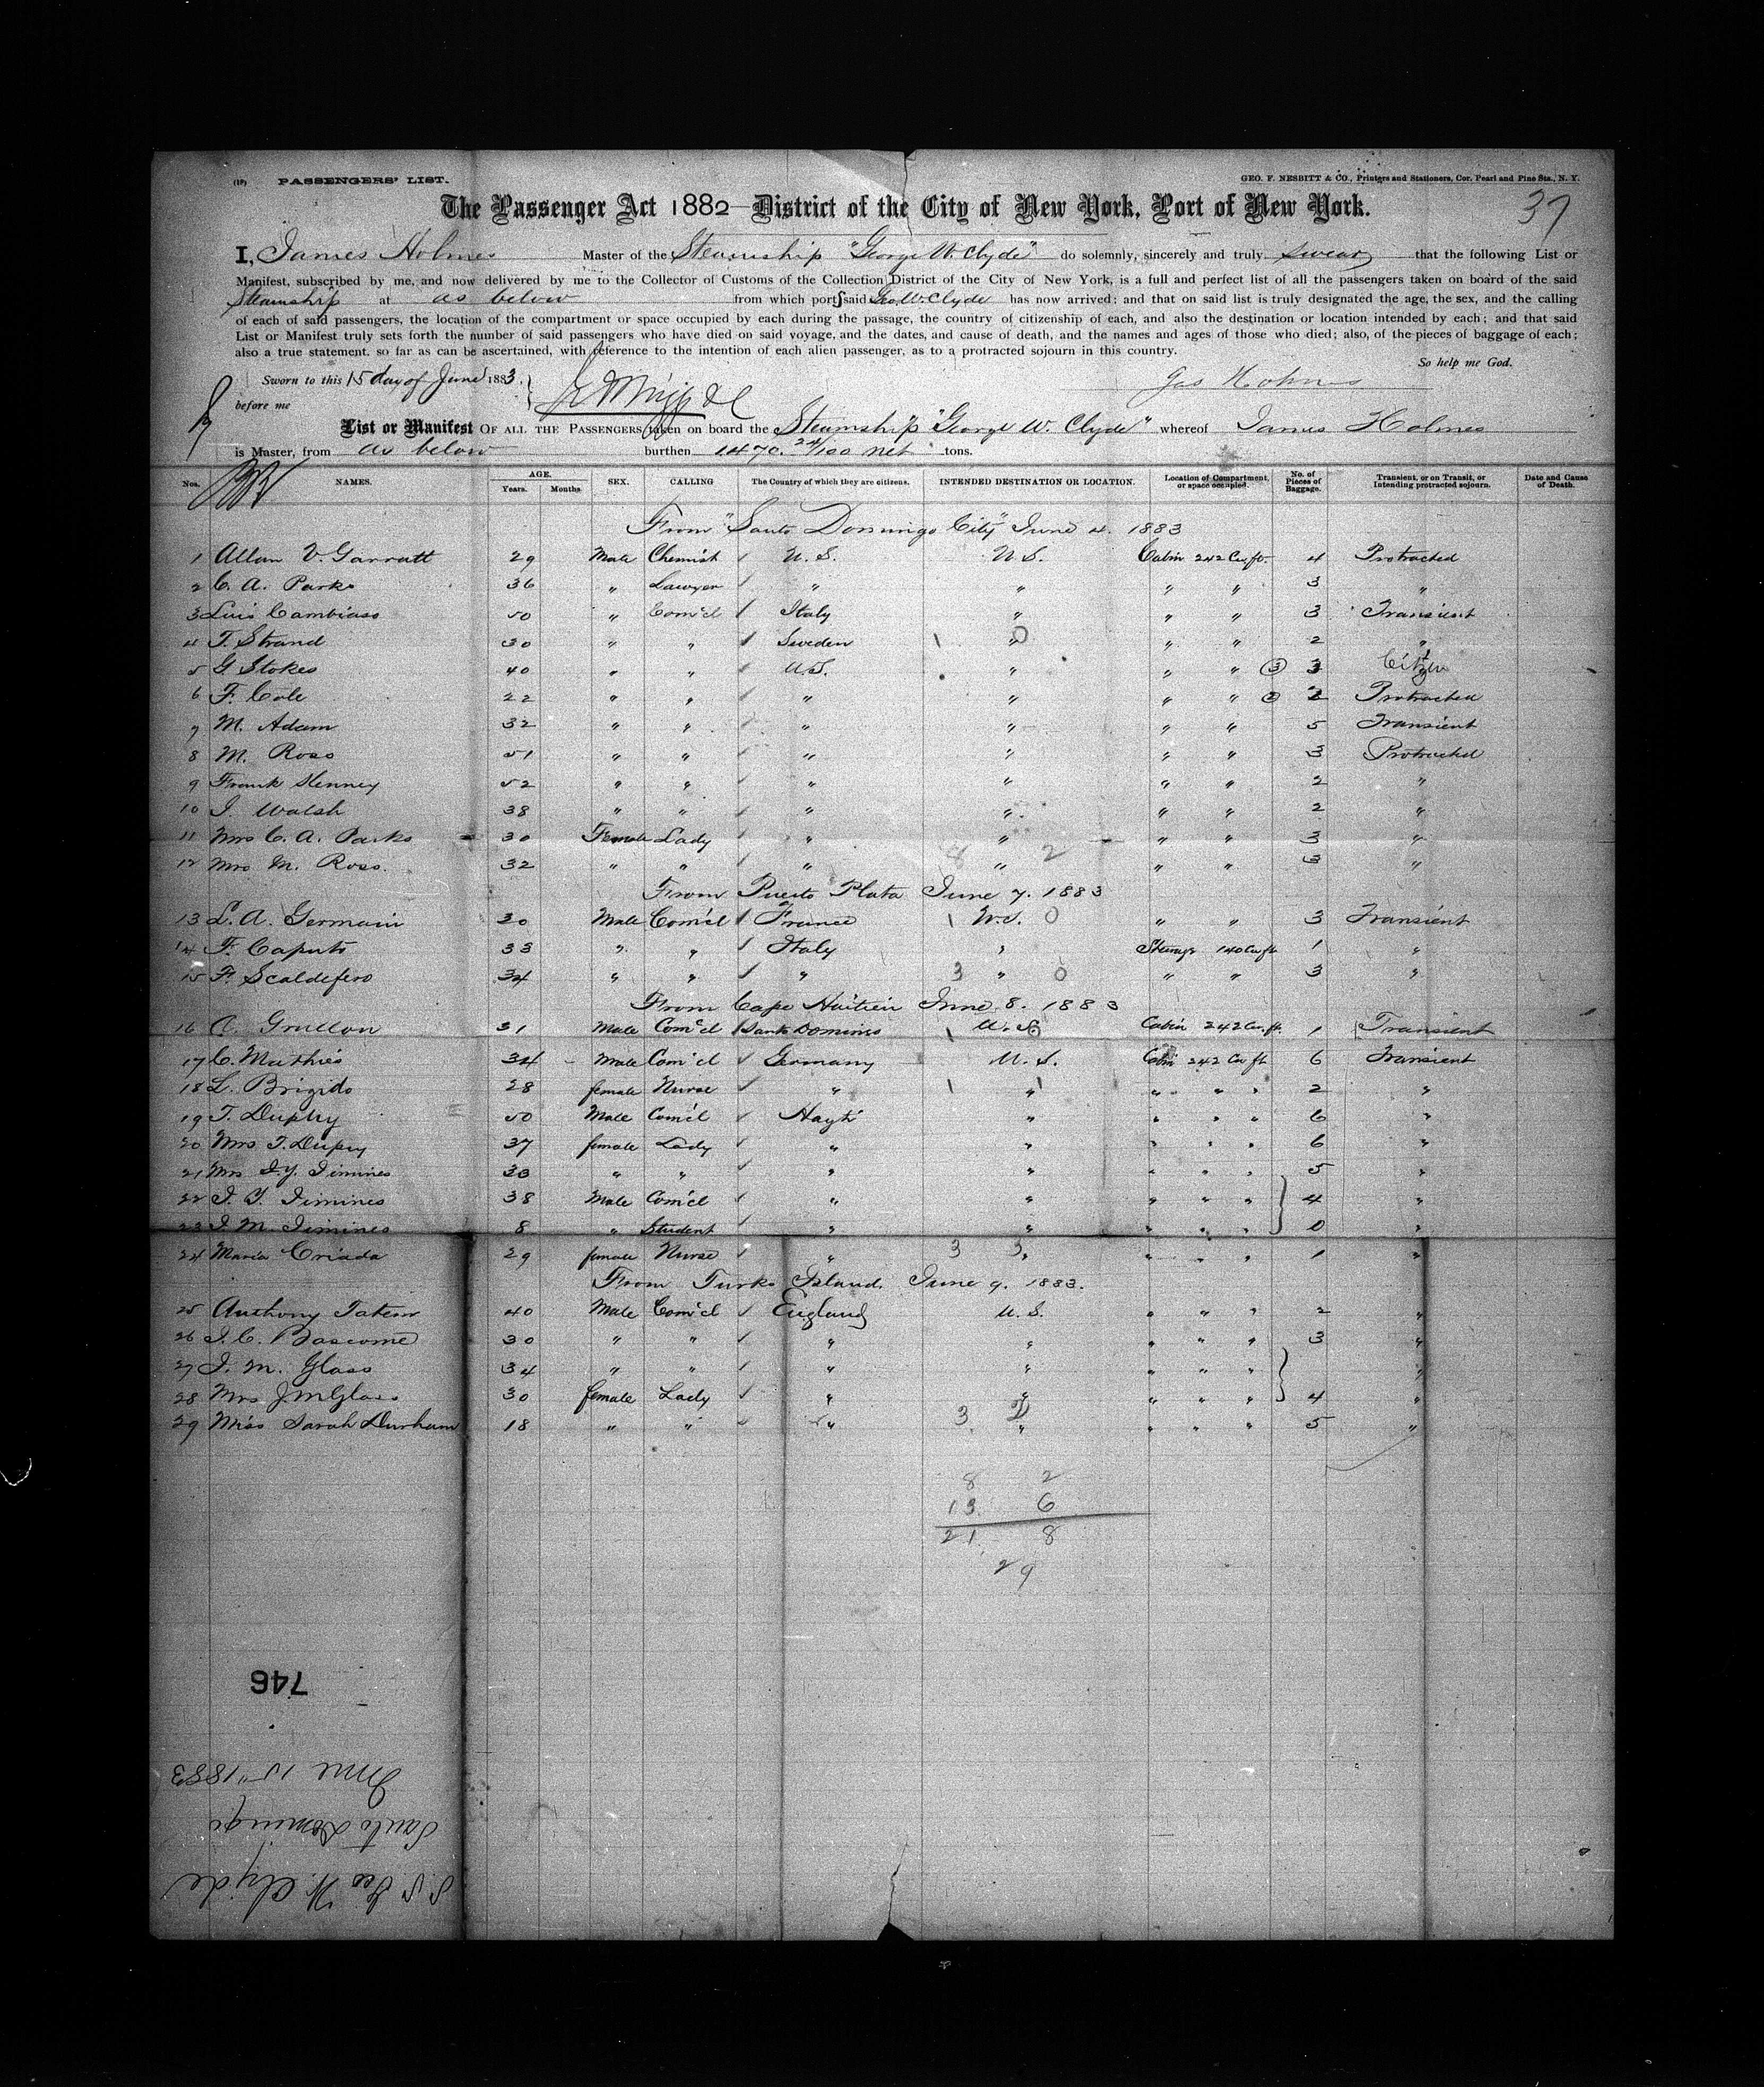 (19) PASSENGERS' LIST. GEO. F. NESBITT & CO., Printers and Stationers, Cor. Pearl and Pine Sts., N. Y.
The Passenger Act 1882 District of the City of New York, Port of New York. 37
I, James Holmes Master of the Steamship "George W. Clyde" do solemnly, sincerely and truly swear that the following List or
Manifest, subscribed by me, and now delivered by me to the Collector of Customs of the Collection District of the City of New York, is a full and perfect list of all the passengers taken on board of the said
Steamship at as below from which port said Geo. W. Clyde has now arrived; and that on said list is truly designated the age, the sex, and the calling
of each of said passengers, the location of the compartment or space occupied by each during the passage, the country of citizenship of each, and also the destination or location intended by each; and that said
List or Manifest truly sets forth the number of said passengers who have died on said voyage, and the dates, and cause of death, and the names and ages of those who died; also, of the pieces of baggage of each;
also a true statement, so far as can be ascertained, with reference to the intention of each alien passenger, as to a protracted sojourn in this country.
So help me God.
Sworn to this 15 day of June 1883.
Jas Holmes
before me
List or Manifest OF ALL THE PASSENGERS taken on board the Steamship "George W. Clyde" whereof James Holmes
is Master, from as below burthen 1470. 24/100 net tons.
Nos. NAMES. AGE. Years. Months SEX. CALLING The Country of which they are citizens. INTENDED DESTINATION OR LOCATION. Location of Compartment, or space occupied. No. of Pieces of Baggage. Transient, or on Transit, or Intending protracted sojourn. Date and Cause of Death.
From "Santo Domingo City" June 4. 1883
1 Allan V. Garratt 29 Male Chemist U. S. U. S. Cabin 242 Cu ft. 4 Protracted
2 C. A. Parks 36 " Lawyer " " " " 3 "
3 Luis Cambiaso 50 " Com'cl Italy " " " 3 Transient
4 T. Strand 30 " " Sweden 1 " 0 " " 2 "
5 G Stokes 40 " " U.S. " " " 3 3 Citizen
6 F. Cole 22 " " " " " " 2 2 Protracted
7 M. Adam 32 " " " " " " 5 Transient
8 M. Ross 51 " " " " " " 3 Protracted
9 Frank Kenney 52 " " " " " " 2 "
10 J. Walsh 38 " " " " " " 2 "
11 Mrs C. A. Parks 30 Female Lady " " " " 3 "
12 Mrs M. Ross. 32 " " " 8 " 2 " " 3 "
From Puerto Plata June 7. 1883
13 L. A. Germain 30 Male Com'cl France 1 U.S. 0 " " 3 Transient
14 F. Caputo 33 " " Italy " Steerage 140 Cu ft 1 "
15 F. Scaldefero 34 " " " 3 " 0 " " 3 "
From Cape Haitien June 8. 1883
16 A. Grullon 31 Male Com'cl Santo Domingo 1 U. S. Cabin 242 Cu. ft. 1 Transient
17 C. Mathies 34 Male Com'cl Germany U. S. Cabin 242 Cu ft 6 Transient
18 L. Brigido 28 female Nurse " 1 " 1 " " " 2 "
19 T. Duphy 50 Male Com'cl Hayti " " " " 6 "
20 Mrs T. Dupuy 37 female Lady " " " " " 6 "
21 Mrs J. Y. Jimines 30 " " " " " " " 5 "
22 J. Y. Jimines 38 Male Com'cl " " " " " 4 "
23 J. M. Jimines 8 " Student " " " " " 0 "
24 Maria Criada 29 female Nurse " 3 3 " " " " 1 "
From Turks Island, June 9. 1883.
25 Anthony Tatem 40 Male Com'cl England U. S. " " " 2 "
26 J. C. Bascome 30 " " " " " " " 3 "
27 J. M. Glass 34 " " " " " " " "
28 Mrs J M Glass 30 female Lady " " " " " 4 "
29 Miss Sarah Durham 18 " " " 3 2 " " " " 5 "
8 2
13 6
21 8
29
746
June 15" 1883
Santo Domingo
S. S. Geo W. Clyde